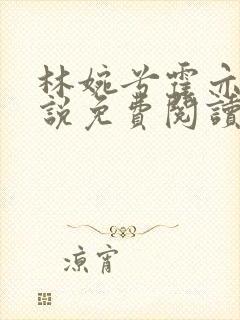 林婉兮霍亦
說免費閱讀
凉宵